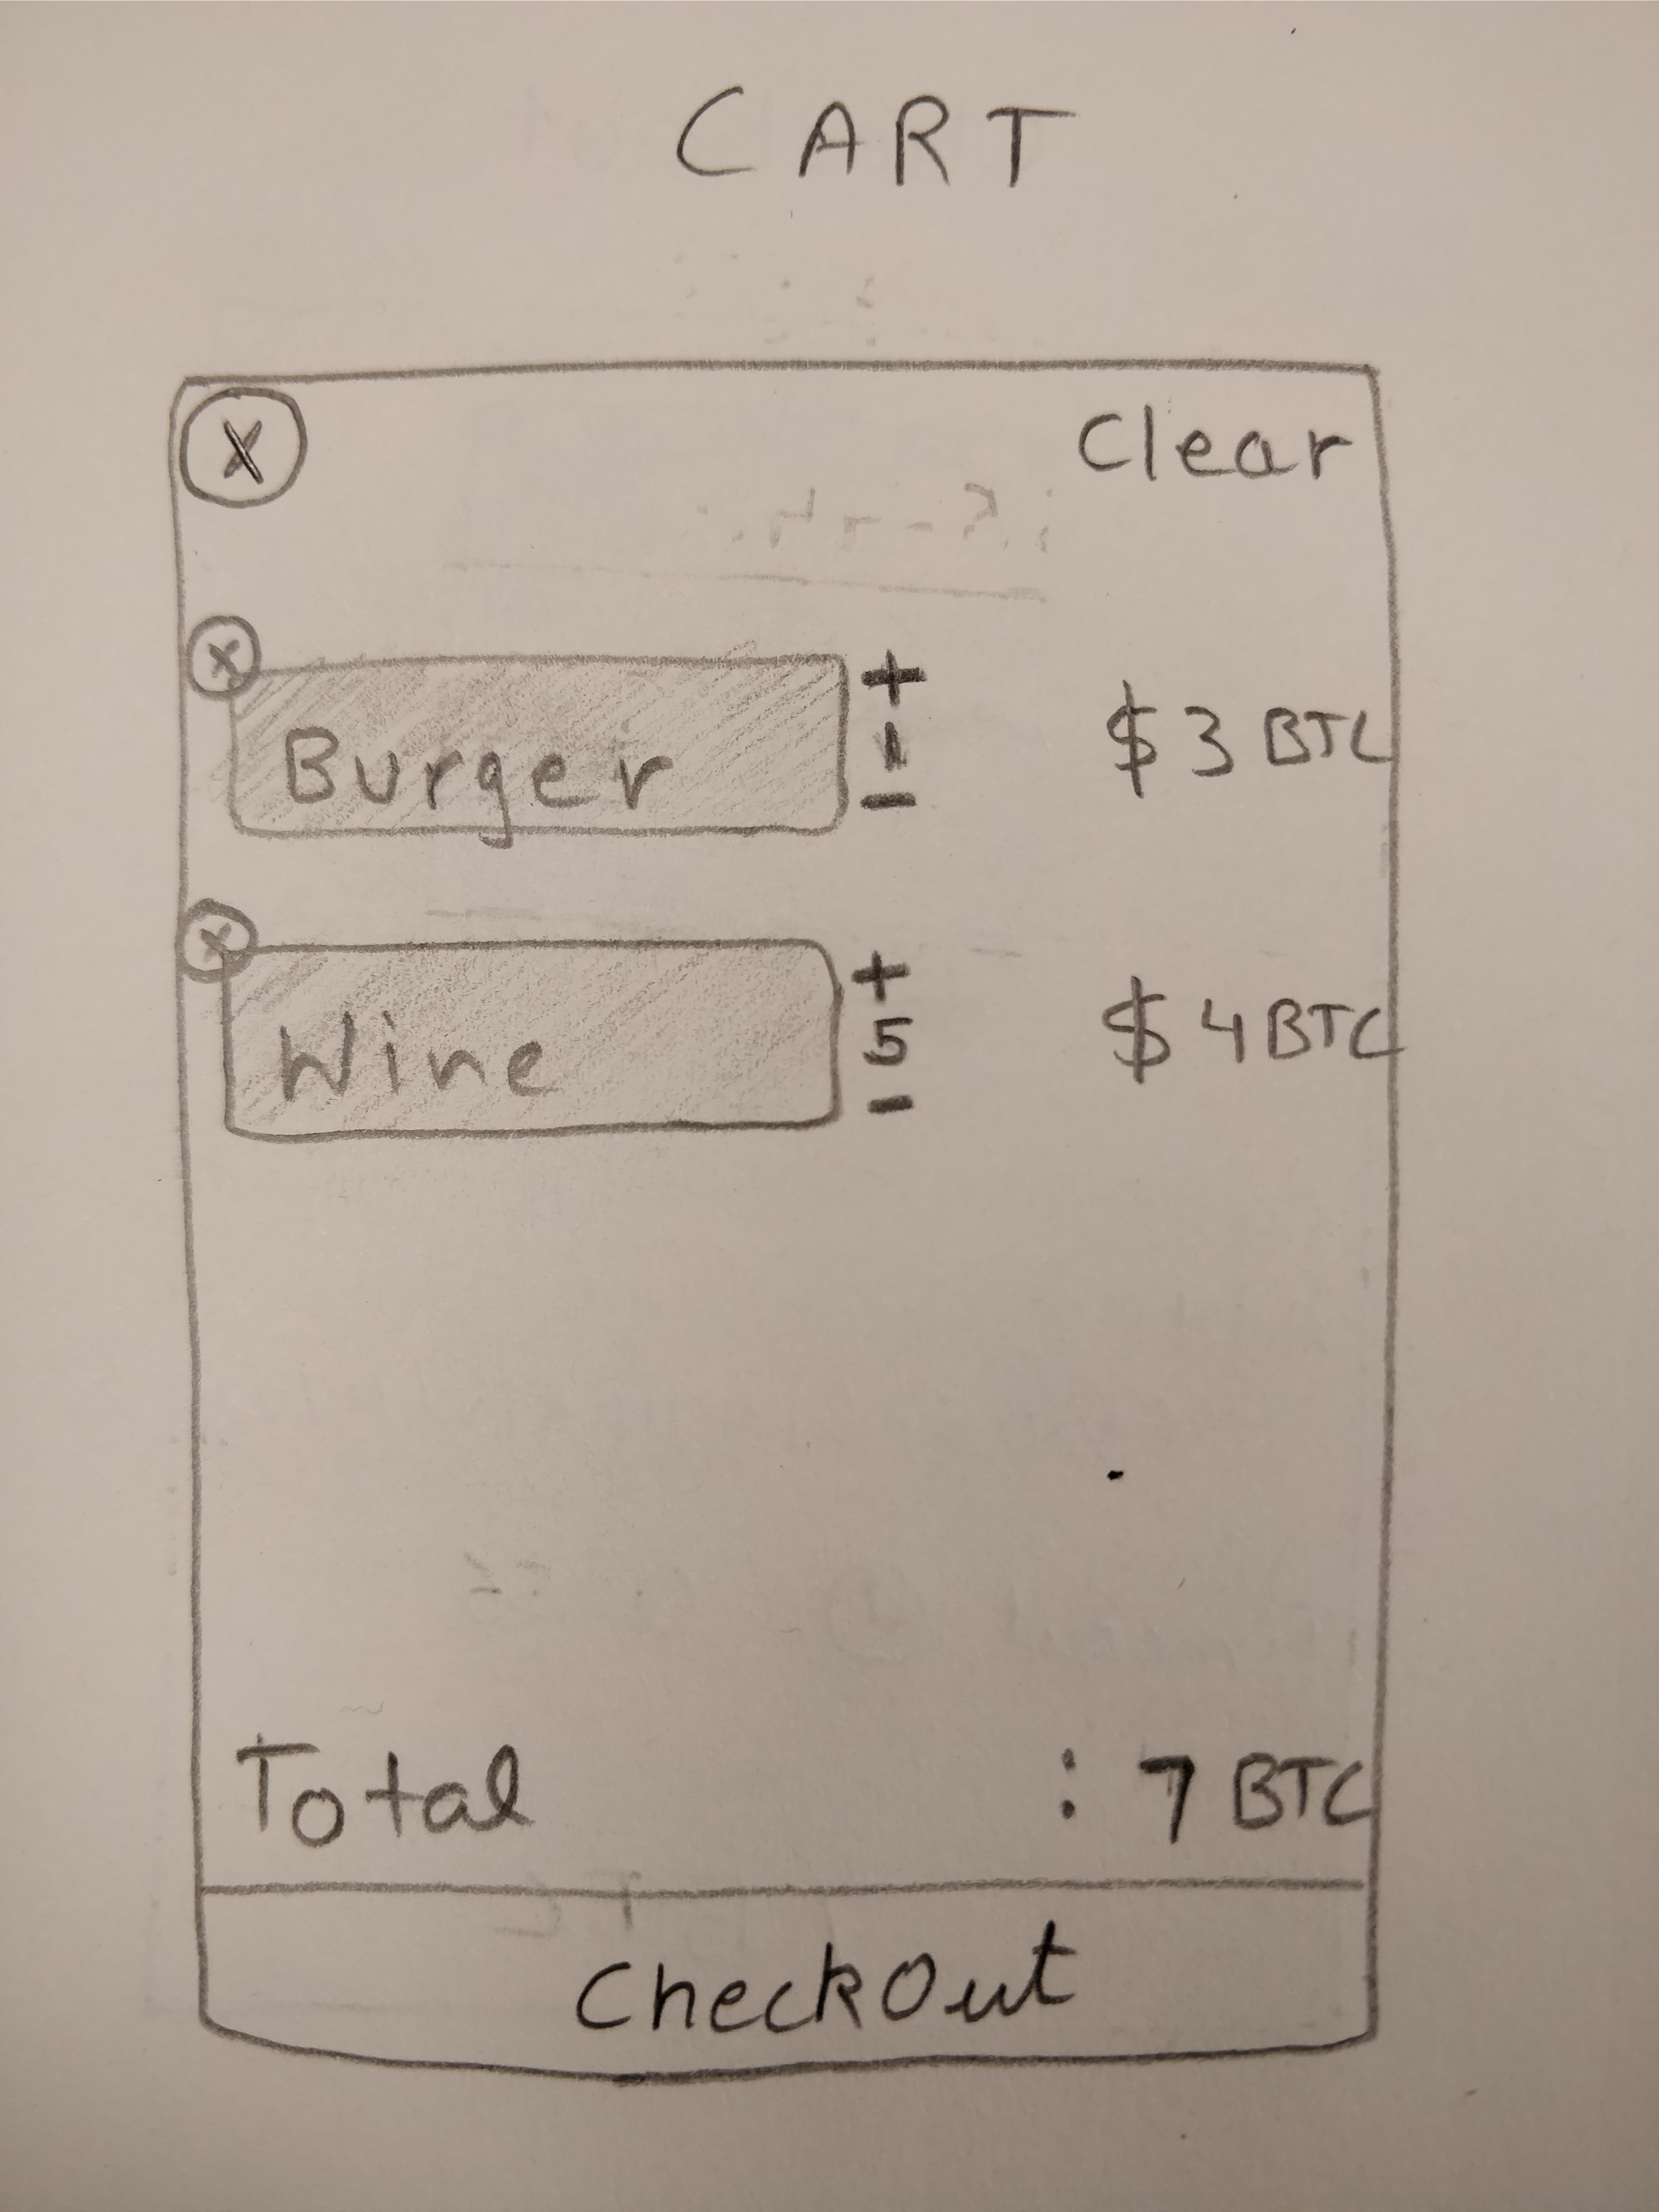 CART
X Clear
X
Burger + 1 - $3 BTC
X
Wine + 5 - $4 BTC
Total : 7 BTC
CheckOut